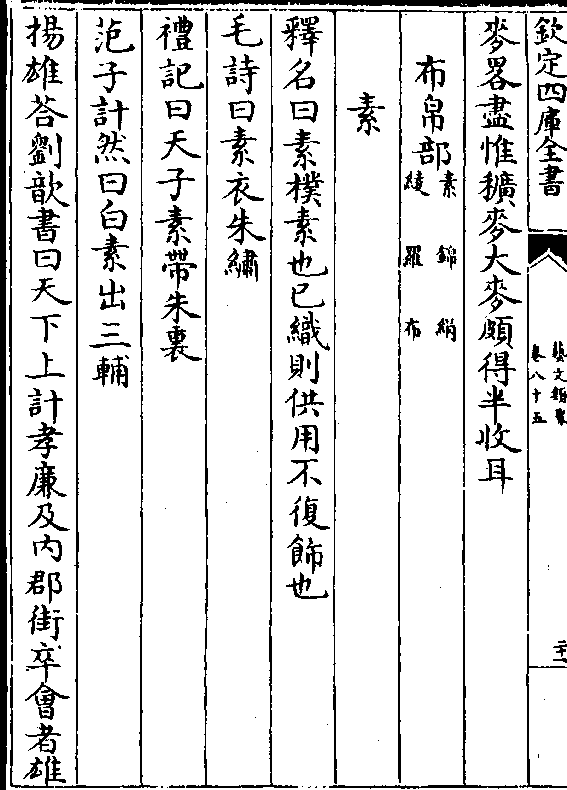 欽定四庫全書
藝文類聚
卷八十五
二十一
麥畧盡惟穬麥大麥頗得半收耳
布帛部
素 錦 絹
綾 羅 布
素
釋名曰素樸素也已織則供用不復飾也
毛詩曰素衣朱繡
禮記曰天子素帶朱裏
范子計然曰白素出三輔
揚雄荅劉歆書曰天下上計孝廉及內郡街卒會者雄